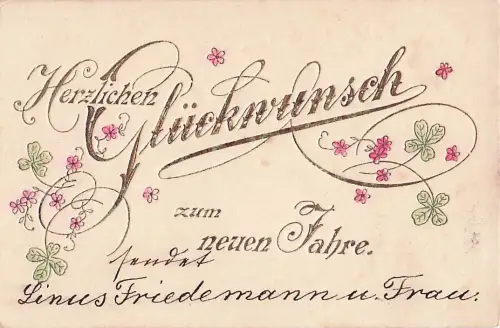 Herzlichen
Glückwunsch
zum
neuen Jahre.
sendet
Linus Friedemann u. Frau.